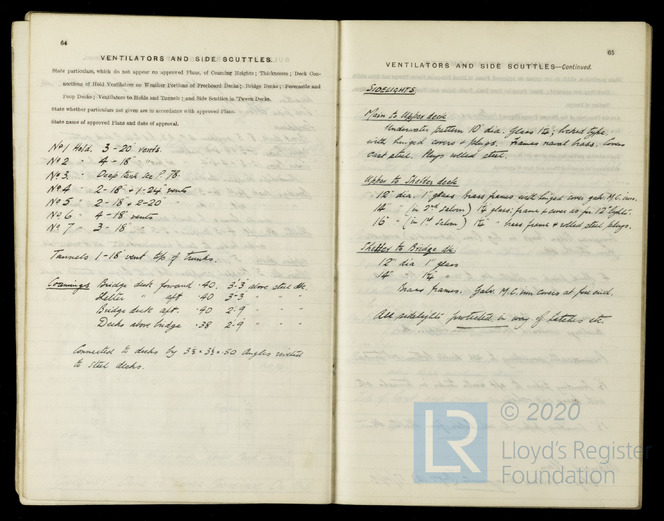 64
VENTILATORS AND SIDE SCUTTLES.
State particulars, which do not appear on approved Plans, of Coaming Heights; Thicknesses; Deck Con-
nections of Hold Ventilators on Weather Portions of Freeboard Decks; Bridge Decks; Forecastle and
Poop Decks; Ventilators to Holds and Tunnels; and Side Scuttles in 'Tween Decks.
State whether particulars not given are in accordance with approved Plans.
State name of approved Plans and date of approval.
No 1 Hold. 3 - 20" vents.
No 2 " 4 - 18" "
No 3 " Deep tank see P. 78.
No 4 " 2 - 18" + 1 - 24" vents
No 5 " 2 - 18" + 2 - 20" "
No 6 " 4 - 18" vents
No 7 " 3 - 18" "
Tunnels 1 - 18" vent top of trunks.
Coamings Bridge deck forward .40. 3'-3" above steel dk.
Shelter " aft .40 3'-3" " " "
Bridge deck aft. .40 2'-9" " " "
Decks above bridge .38 2'-9" " " "
Connected to decks by 3½ × 3½ × .50 angles riveted
to steel decks.
65
VENTILATORS AND SIDE SCUTTLES—Continued.
SIDELIGHTS.
Main to Upper deck
Underwater pattern 10" dia. Glass 1¼", locked type.
with hinged covers & plugs. Frames naval brass. Covers
cast steel. Plugs rolled steel.
Upper to Shelter deck
12" dia. 1" glass brass frames with hinged cover galv. M.C. iron.
14" " (in 2nd Saloon) 1¼" glass: frame & cover as for 12" lights.
16" " (in 1st Saloon) 1¼" " brass frame & rolled steel plugs.
Shelter to Bridge dk.
12" dia 1" glass
14" " 1¼" "
Brass frames. Galv. M.C. iron covers at fore end.
All sidelights protected in way of hatches etc.
LR
© 2020
Lloyd's Register
Foundation